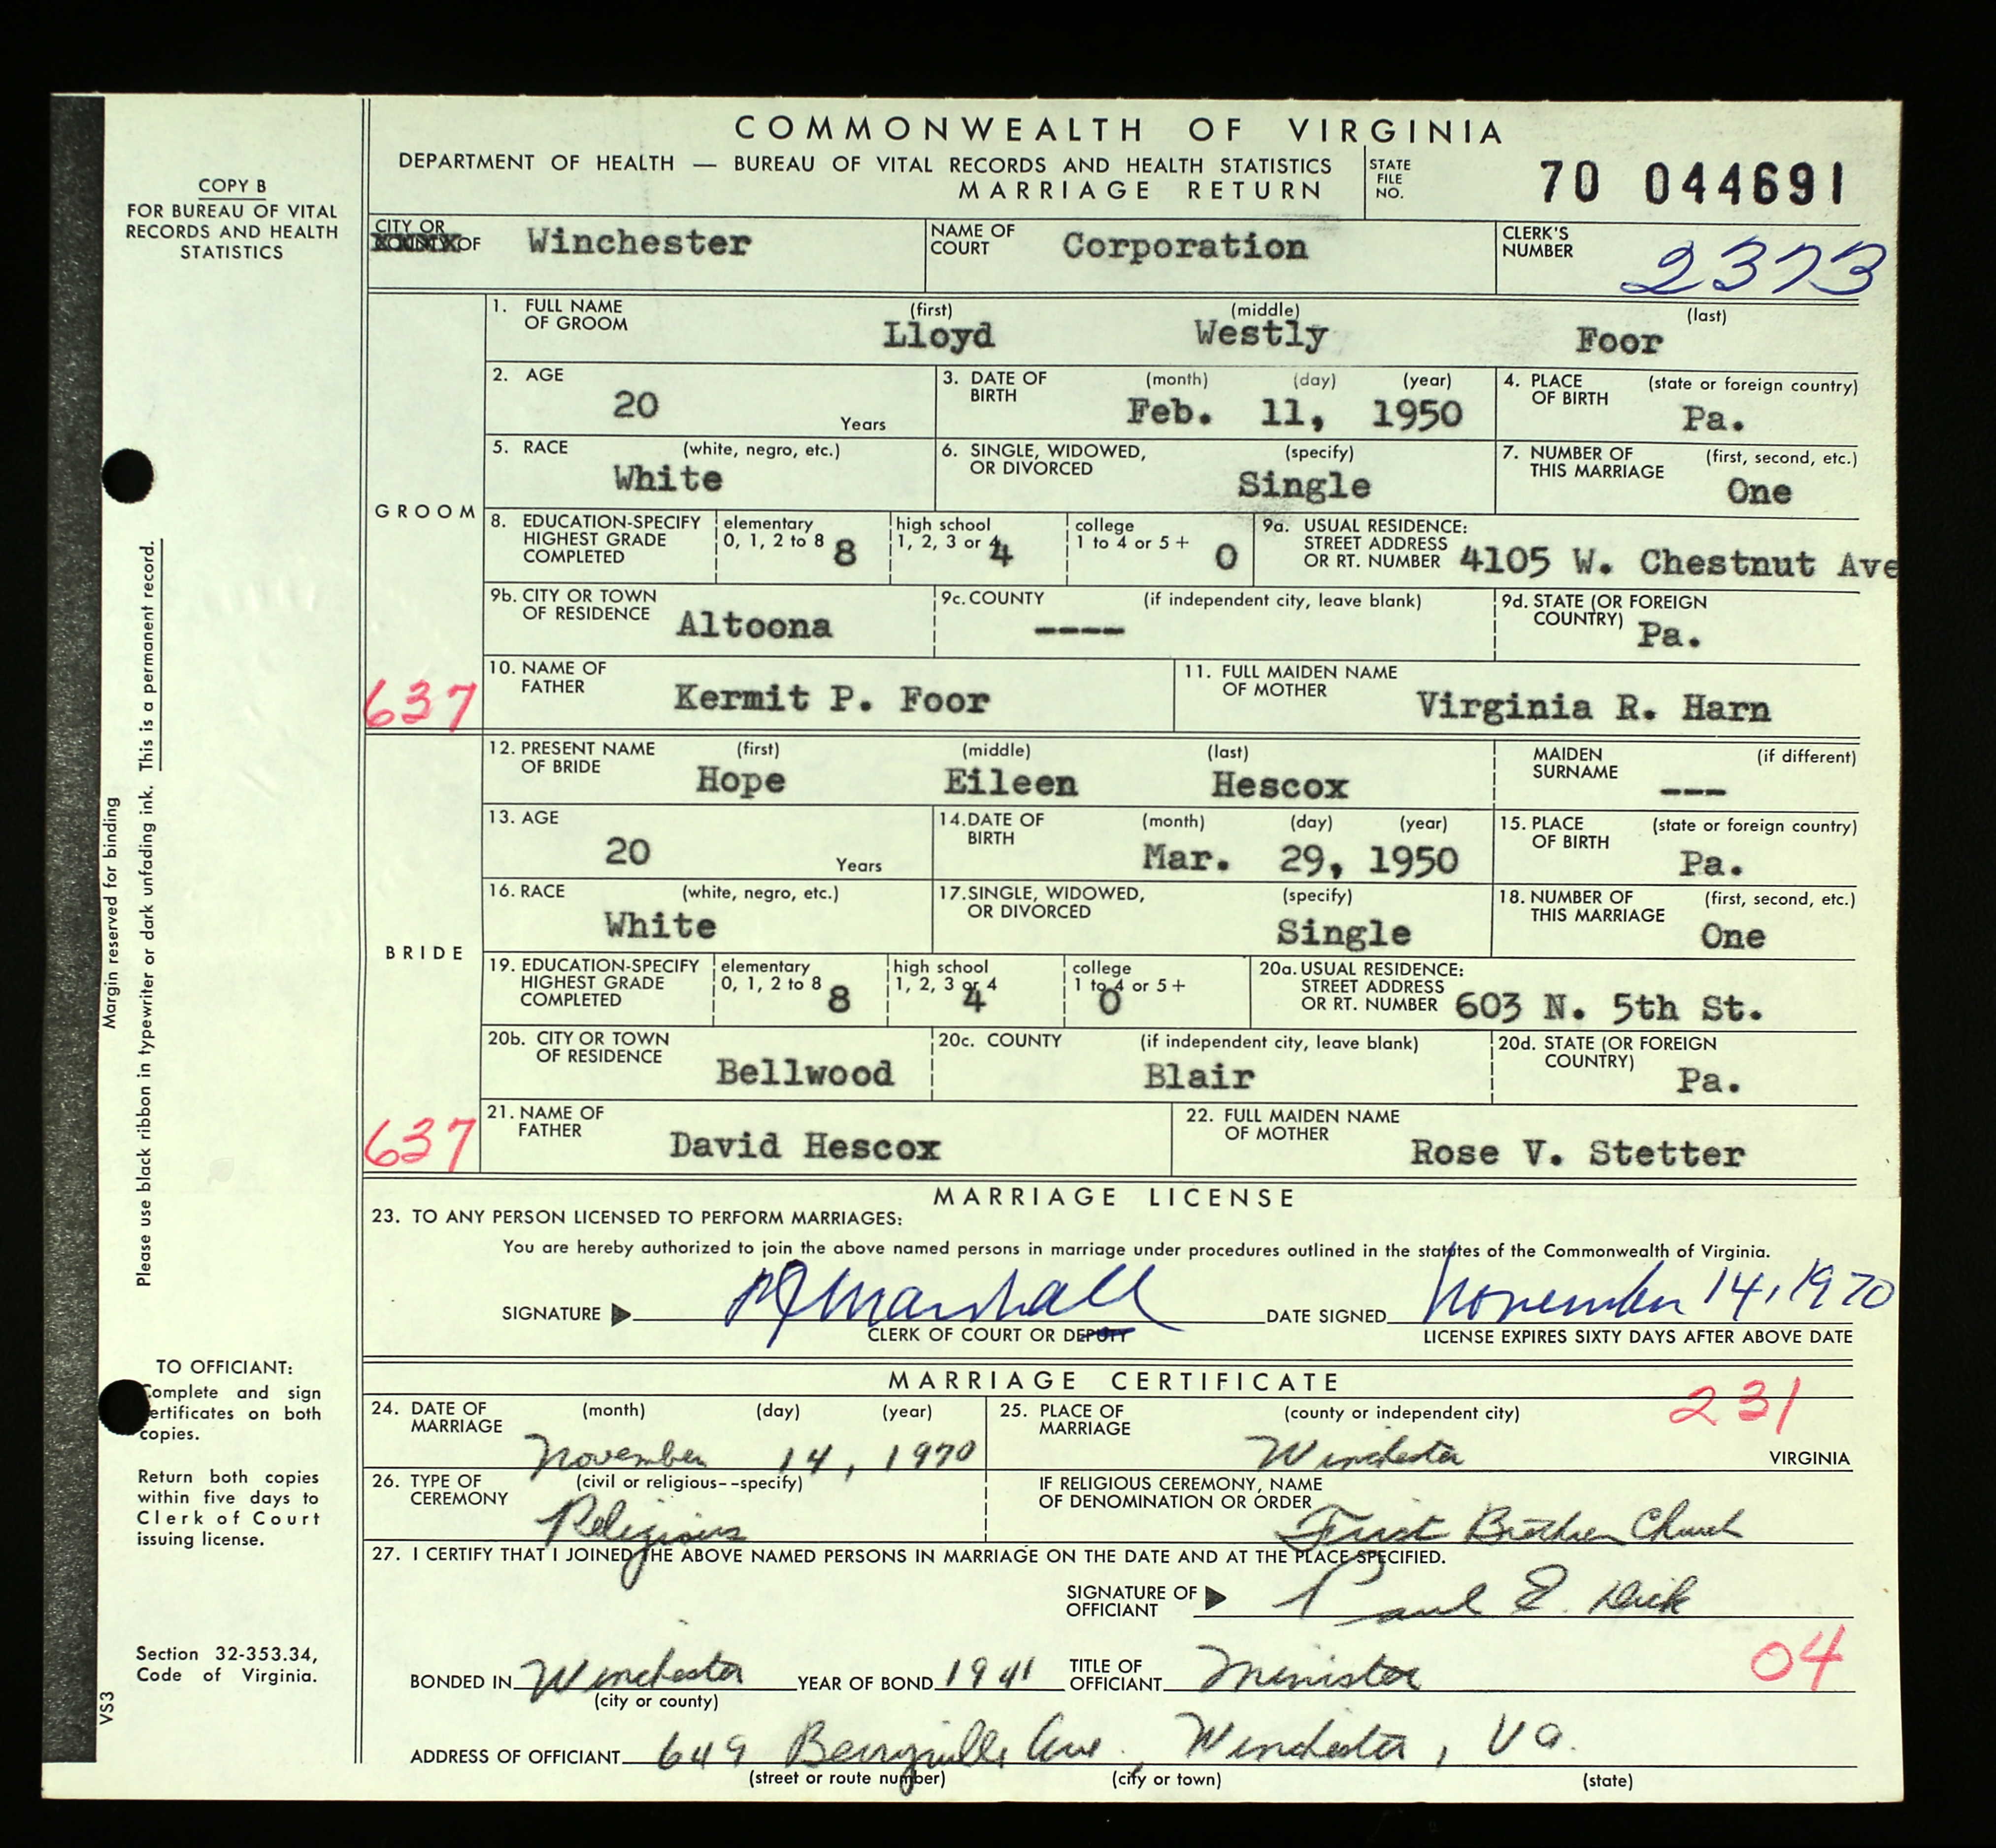 COMMONWEALTH OF VIRGINIA
DEPARTMENT OF HEALTH — BUREAU OF VITAL RECORDS AND HEALTH STATISTICS
MARRIAGE RETURN
STATE FILE NO. 70 044691
COPY B
FOR BUREAU OF VITAL
RECORDS AND HEALTH
STATISTICS
CITY OR OF Winchester NAME OF COURT Corporation CLERK'S NUMBER 2373
GROOM
1. FULL NAME OF GROOM (first) Lloyd (middle) Westly (last) Foor
2. AGE 20 Years 3. DATE OF BIRTH (month) (day) (year) Feb. 11, 1950 4. PLACE OF BIRTH (state or foreign country) Pa.
5. RACE (white, negro, etc.) White 6. SINGLE, WIDOWED, OR DIVORCED (specify) Single 7. NUMBER OF THIS MARRIAGE (first, second, etc.) One
8. EDUCATION-SPECIFY HIGHEST GRADE COMPLETED elementary 0, 1, 2 to 8 8 high school 1, 2, 3 or 4 4 college 1 to 4 or 5+ 0 9a. USUAL RESIDENCE: STREET ADDRESS OR RT. NUMBER 4105 W. Chestnut Ave
9b. CITY OR TOWN OF RESIDENCE Altoona 9c. COUNTY (if independent city, leave blank) ---- 9d. STATE (OR FOREIGN COUNTRY) Pa.
10. NAME OF FATHER Kermit P. Foor 11. FULL MAIDEN NAME OF MOTHER Virginia R. Harn
637
BRIDE
12. PRESENT NAME OF BRIDE (first) Hope (middle) Eileen (last) Hescox MAIDEN SURNAME (if different) ---
13. AGE 20 Years 14. DATE OF BIRTH (month) (day) (year) Mar. 29, 1950 15. PLACE OF BIRTH (state or foreign country) Pa.
16. RACE (white, negro, etc.) White 17. SINGLE, WIDOWED, OR DIVORCED (specify) Single 18. NUMBER OF THIS MARRIAGE (first, second, etc.) One
19. EDUCATION-SPECIFY HIGHEST GRADE COMPLETED elementary 0, 1, 2 to 8 8 high school 1, 2, 3 or 4 4 college 1 to 4 or 5+ 0 20a. USUAL RESIDENCE: STREET ADDRESS OR RT. NUMBER 603 N. 5th St.
20b. CITY OR TOWN OF RESIDENCE Bellwood 20c. COUNTY (if independent city, leave blank) Blair 20d. STATE (OR FOREIGN COUNTRY) Pa.
21. NAME OF FATHER David Hescox 22. FULL MAIDEN NAME OF MOTHER Rose V. Stetter
637
MARRIAGE LICENSE
23. TO ANY PERSON LICENSED TO PERFORM MARRIAGES:
You are hereby authorized to join the above named persons in marriage under procedures outlined in the statutes of the Commonwealth of Virginia.
SIGNATURE Marshall DATE SIGNED November 14, 1970
CLERK OF COURT OR DEPUTY LICENSE EXPIRES SIXTY DAYS AFTER ABOVE DATE
MARRIAGE CERTIFICATE
231
24. DATE OF MARRIAGE (month) (day) (year) November 14, 1970 25. PLACE OF MARRIAGE (county or independent city) Winchester VIRGINIA
26. TYPE OF CEREMONY (civil or religious--specify) Religious IF RELIGIOUS CEREMONY, NAME OF DENOMINATION OR ORDER First Brethren Church
27. I CERTIFY THAT I JOINED THE ABOVE NAMED PERSONS IN MARRIAGE ON THE DATE AND AT THE PLACE SPECIFIED.
SIGNATURE OF OFFICIANT Paul E. Dick
04
BONDED IN Winchester YEAR OF BOND 1941 TITLE OF OFFICIANT Minister
(city or county)
ADDRESS OF OFFICIANT 649 Berryville Ave., Winchester, Va.
(street or route number) (city or town) (state)
Margin reserved for binding
Please use black ribbon in typewriter or dark unfading ink. This is a permanent record.
TO OFFICIANT:
Complete and sign
certificates on both
copies.
Return both copies
within five days to
Clerk of Court
issuing license.
Section 32-353.34,
Code of Virginia.
VS3